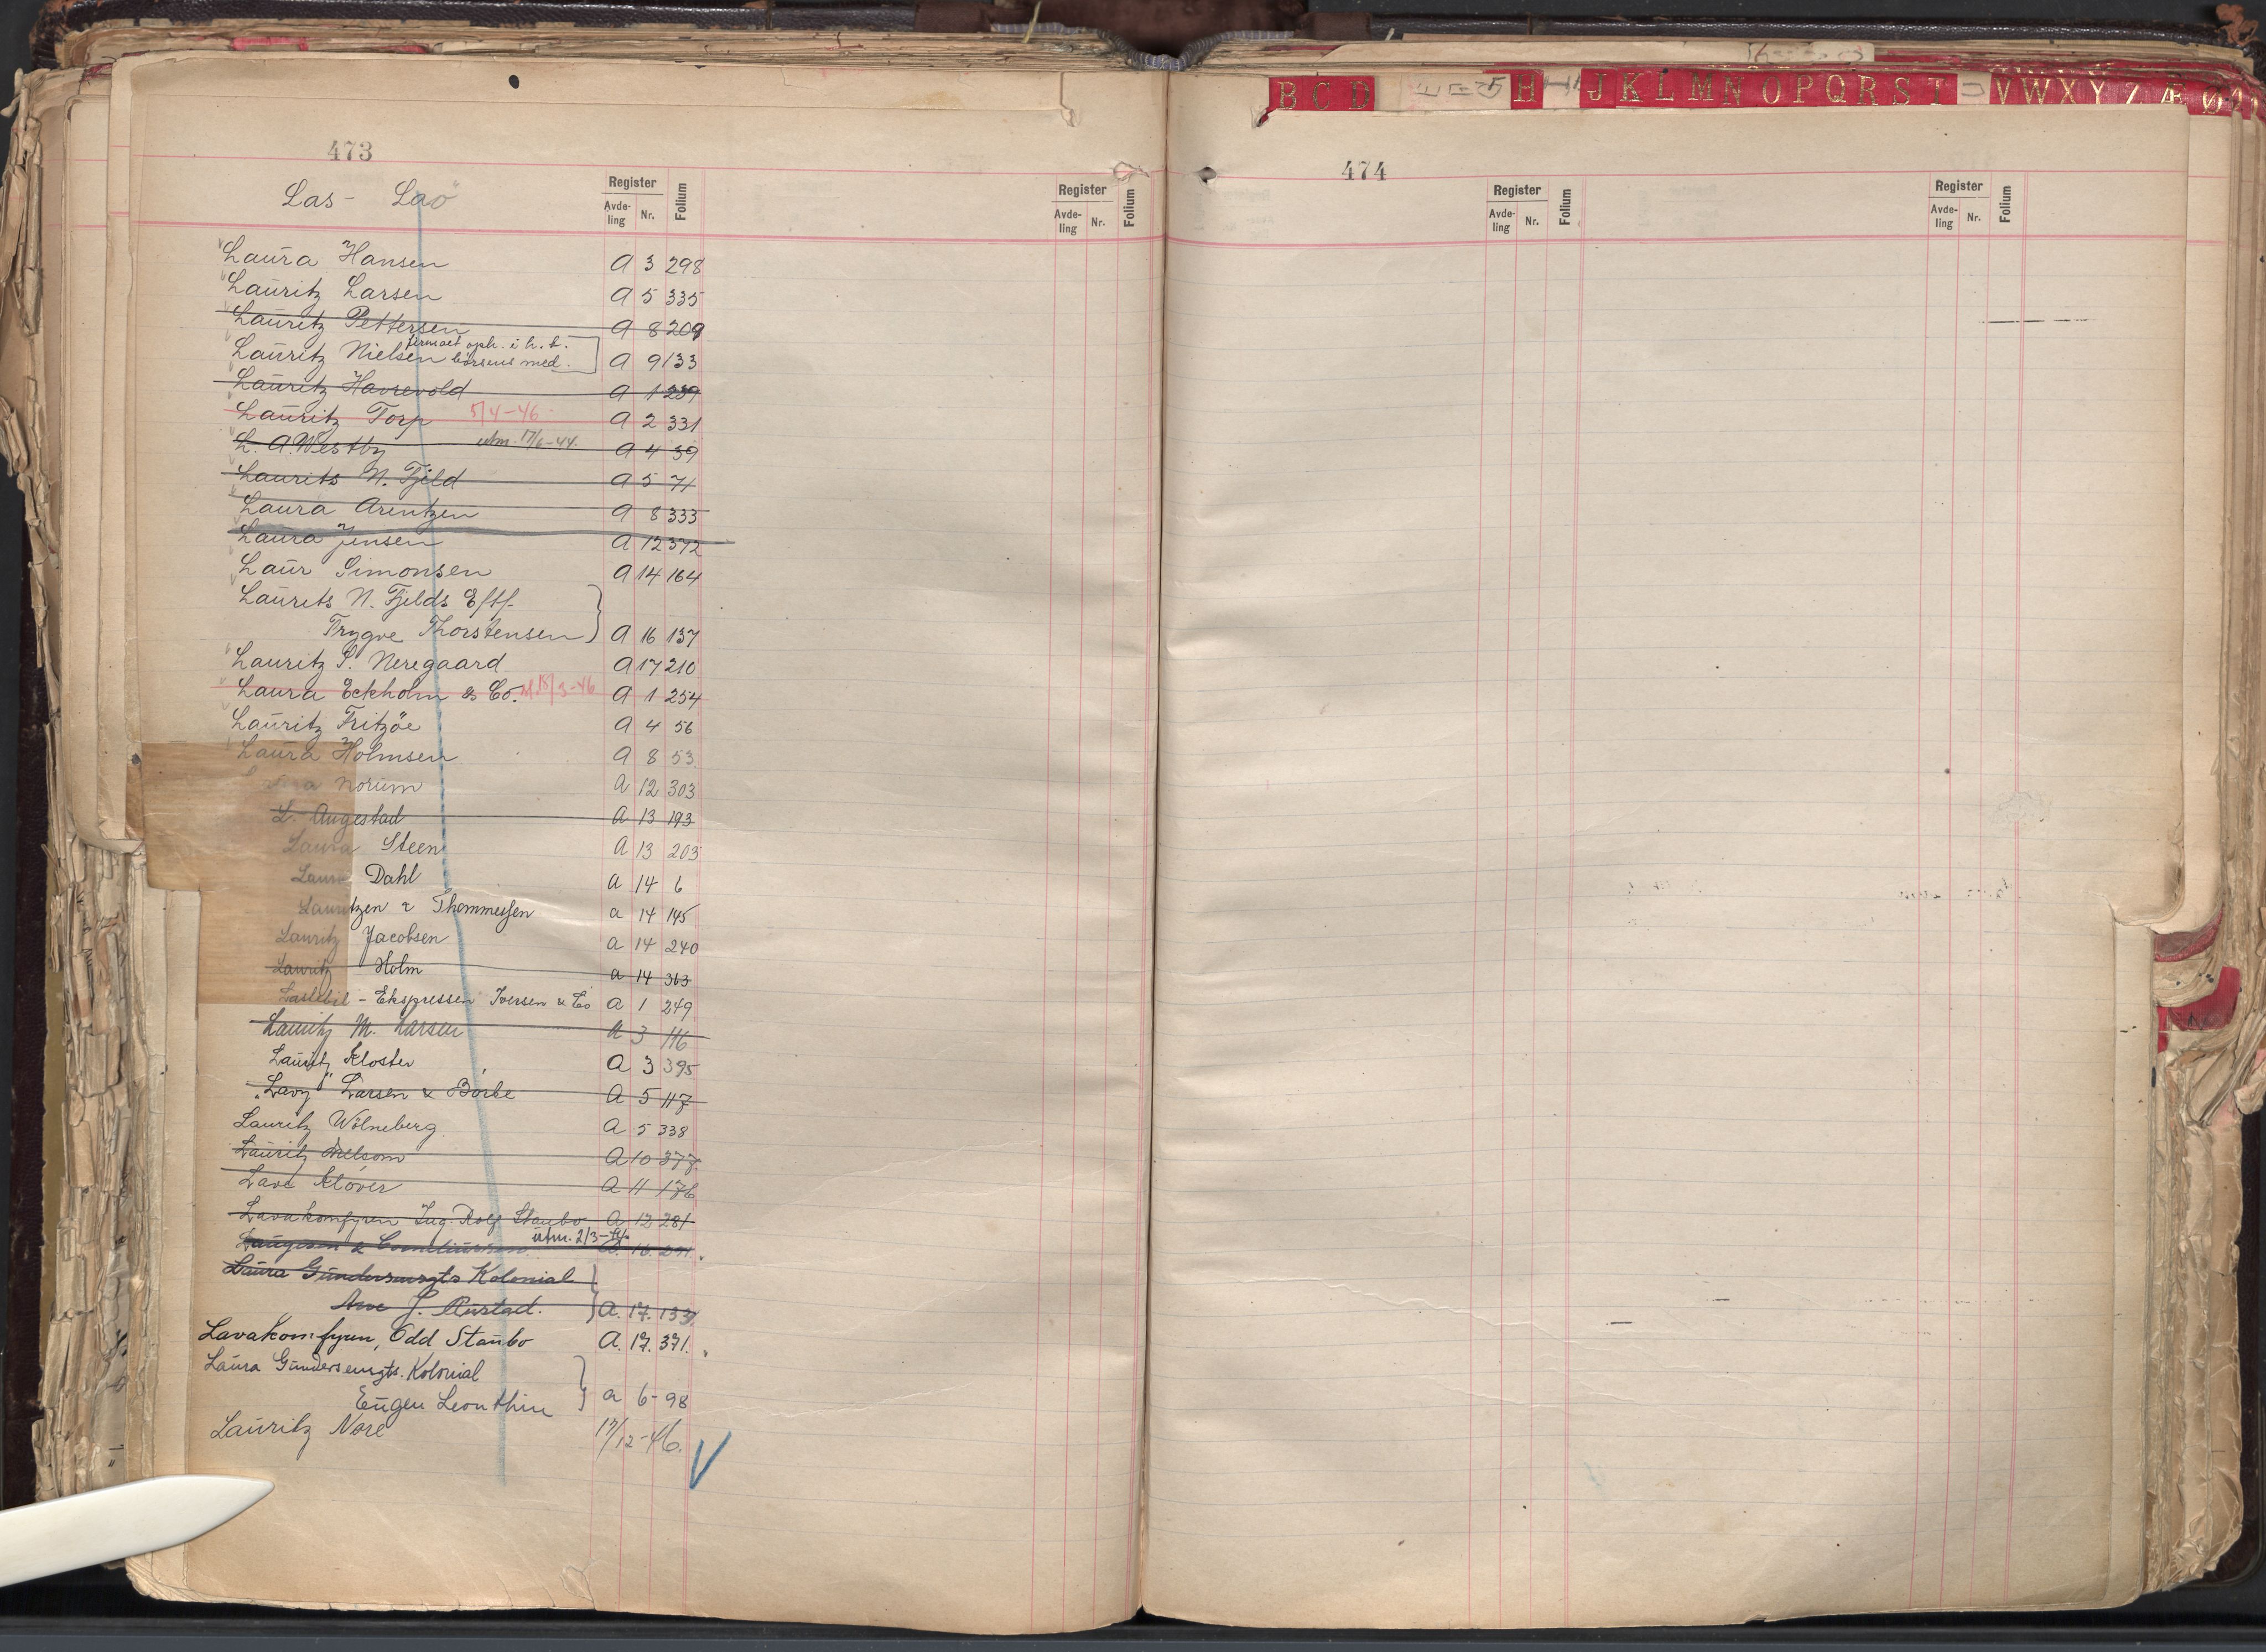 473
Las - Laö
Register
Avde-
ling
Nr.
Folium
Register
Avde-
ling
Nr.
Folium
Laura Hansen A 3 298
Lauritz Larsen A 5 335
Lauritz Pettersen A 8 209
firmaet oph. i h. t.
Lauritz Nielsen børsens med. A 9 133
Lauritz Havrevold A 1 239
Lauritz Torp 5/4-46 A 2 331
L. A. Westby utm. 17/6-44. A 4 39
Laurits N. Fjeld A 5 71
Laura Arentzen A 8 333
Laura Jensen A 12 372
Laur Simonsen A 14 164
Laurits N. Fjelds Eftf.
Trygve Thorstensen A 16 137
Lauritz S. Neregaard A 17 210
Laura Eckholm & Co. 15/3-46 A 1 254
Lauritz Fritzöe A 4 56
Laura Holmsen A 8 53
Norum A 12 303
L. Augestad A 13 193
Laura Steen A 13 203
Laura Dahl A 14 6
Lauritzen & Thommessen a 14 145
Lauritz Jacobsen a 14 240
Lauritz Holm a 14 363
Lastebil - Ekspressen Iversen & Co a 1 249
Lauritz M. Larsen A 3 116
Lauritz Kloster A 3 395
"Lavy" Larsen & Børbe A 5 117
Lauritz Wölneberg A 5 338
Lauritz Melsom A 10 377
Lave Kløver A 11 176
Lavakomfyren Ing. Rolf Staubo A 12 281
utm. 2/3-
Laura Gundersens Kolonial
J. Rustad. A. 17. 133
Lavakomfyren, Odd Staubo A. 17. 371.
Laura Gundersens Kolonial
Eugen Leonthin a 6-98
Lauritz Nore 17/12-46. V
B C D E F G H I J K L M N O P Q R S T U V W X Y Z Æ Ø
474
Register
Avde-
ling
Nr.
Folium
Register
Avde-
ling
Nr.
Folium